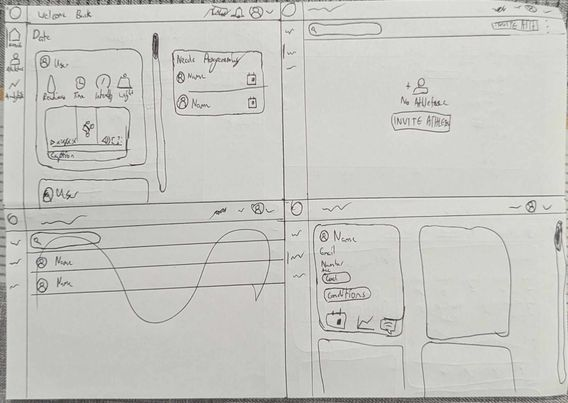 Welcome Back
Date
Home
Athletes
Analytics
User
Readiness
Time
Intensity
Weight
Caption
User
Needs Programming
Name
Name
INVITE ATH
No Athletes :(
INVITE ATHLETE
Name
Name
Name
Email
Number
Goal
Conditions